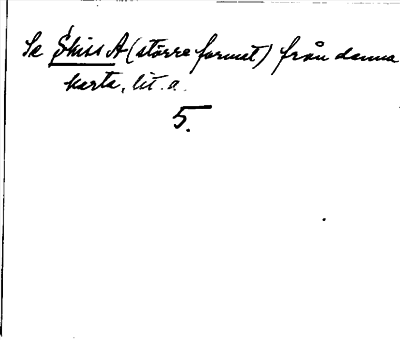 Se Skiss A (större format) från denna
karta, lit. a.
5.